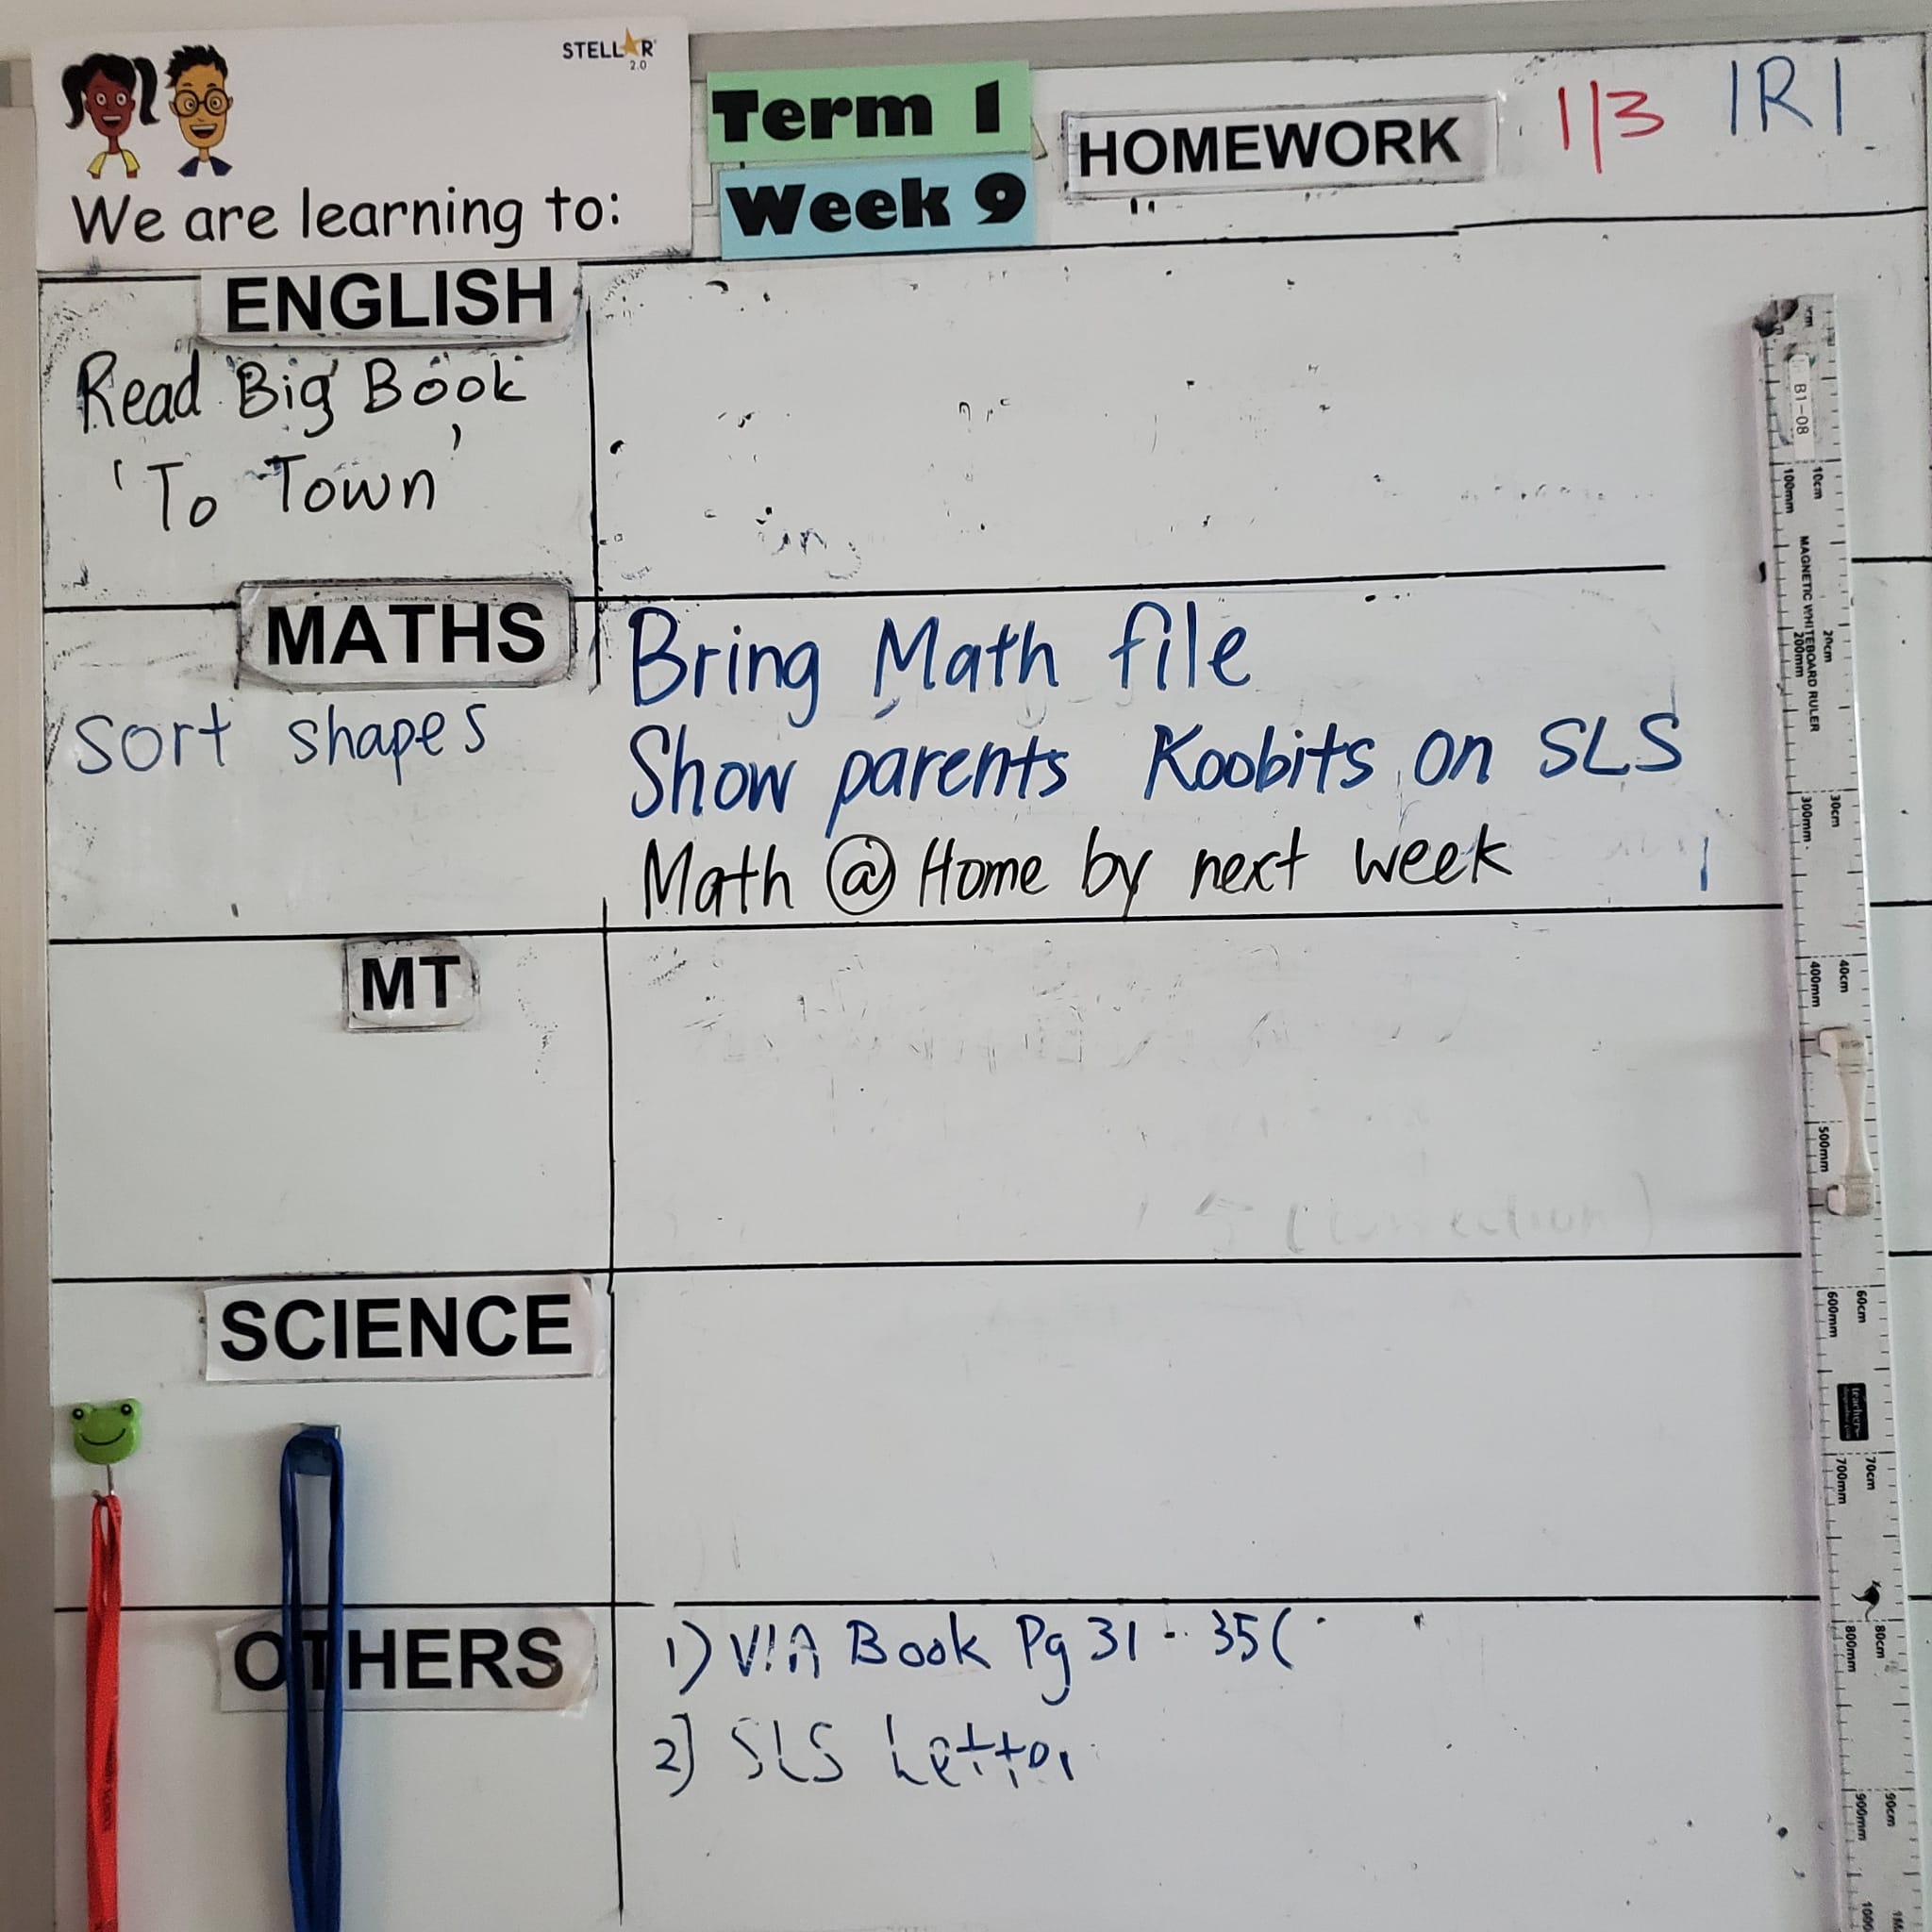 STELLAR
2.0
We are learning to:
Term 1
Week 9
HOMEWORK
1/3 1R1
ENGLISH
Read Big Book
'To Town'
MATHS
sort shapes
Bring Math file
Show parents Koobits on SLS
Math @ Home by next week
MT
SCIENCE
OTHERS
1) VIA Book Pg 31 - 35 (
2) SLS Letter
B1-08
MAGNETIC WHITEBOARD RULER
cm
10cm
100mm
20cm
200mm
30cm
300mm
40cm
400mm
500mm
60cm
600mm
70cm
700mm
80cm
800mm
90cm
900mm